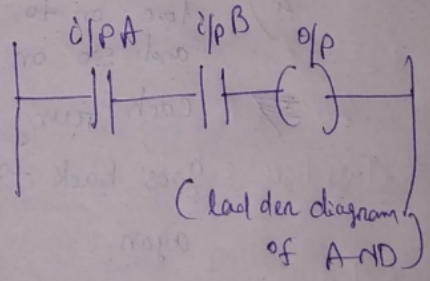 i/p A
i/p B
o/p
(ladder diagram
of AND)